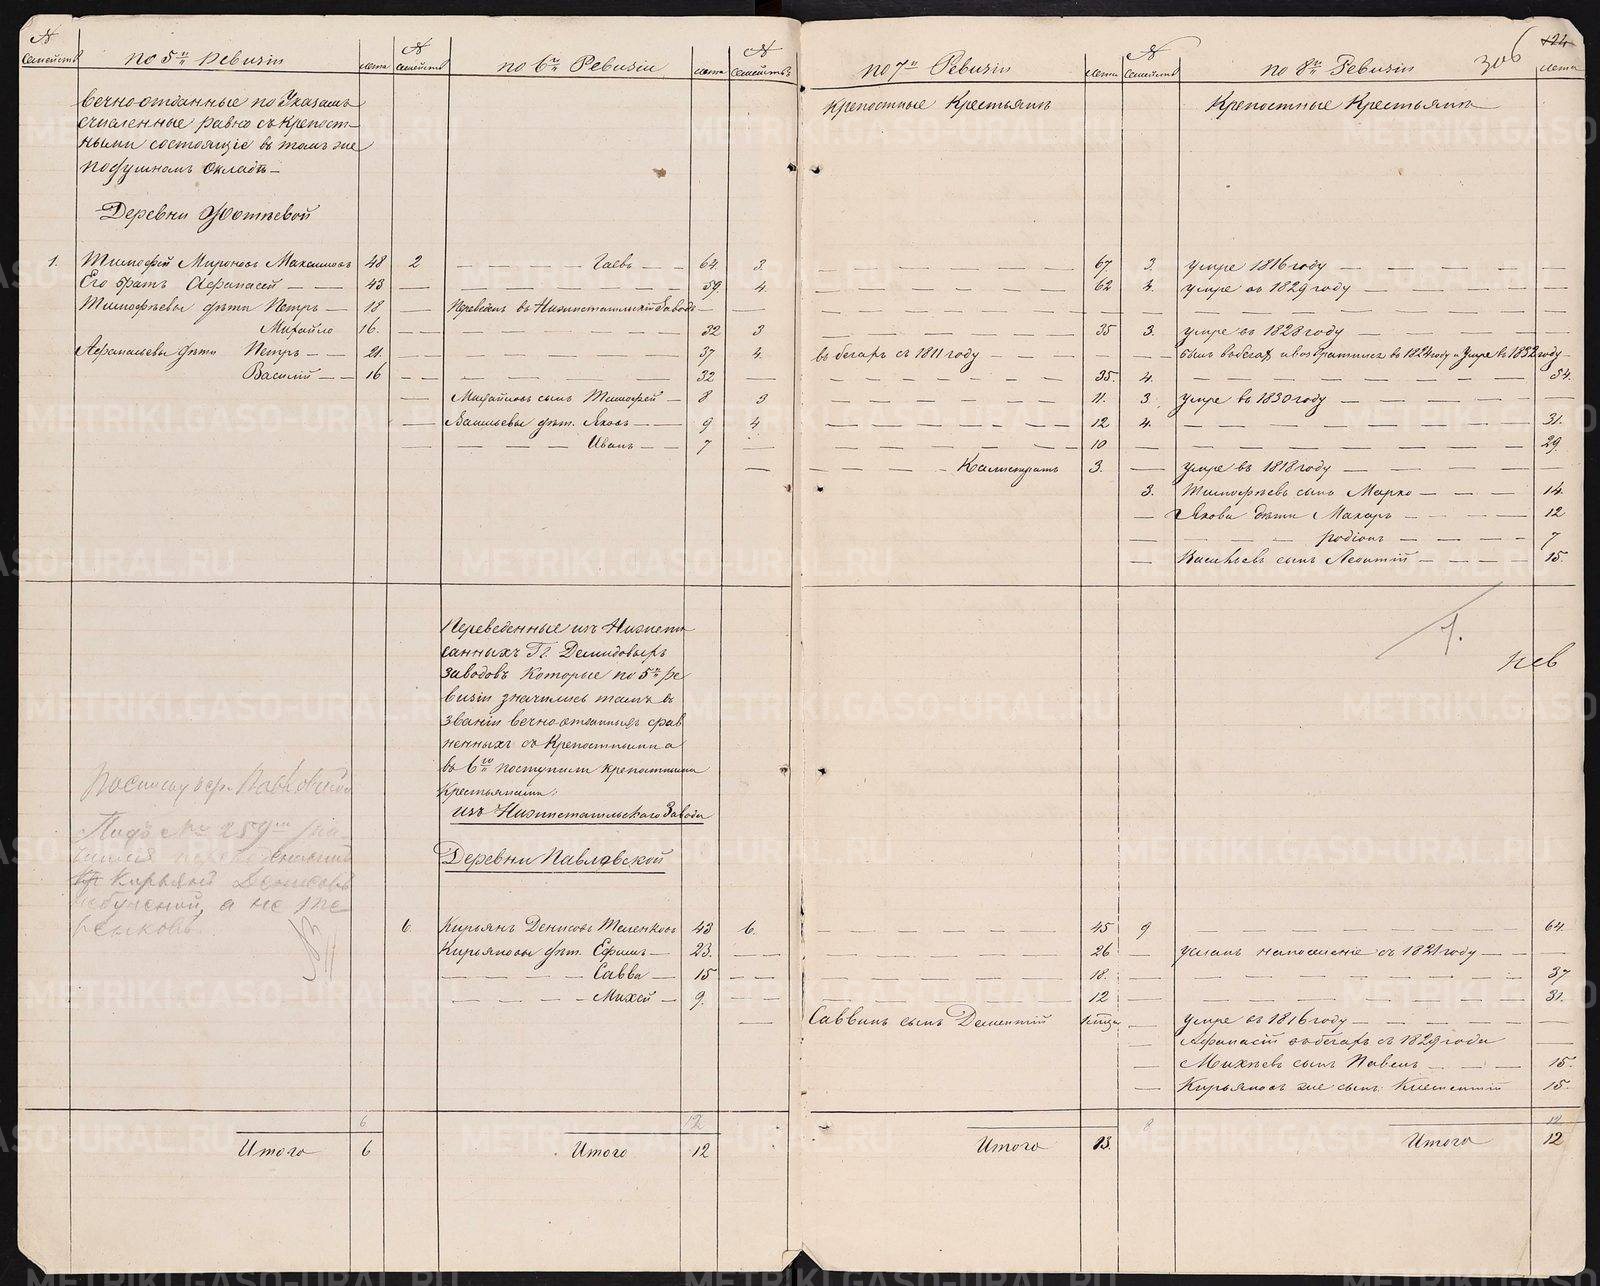 № семействъ
по 5й Ревизіи
лета
№ семействъ
по 6й Ревизіи
лета
№ семействъ
по 7й Ревизіи
лета
№ семействъ
по 8й Ревизіи
лета
306
124
вечноотданные по Указамъ
счисленные равно съ крепост-
ными состоящіе въ томъ же
подушномъ окладѣ
Деревни
1. Тимофей Мироновъ Максимовъ 48 2 Гаевъ 64. 3. 67 3. умре 1816 году
Его братъ Афанасей 43 59. 4. 62 4. умре въ 1829 году
Тимофѣевы дѣти Петръ 18 Переведенъ въ Нижнетагильскій Заводъ
Михайло 16. 32 3 35 3. умре въ 1828 году
Афанасьевы дѣти Петръ 21. 37 4. въ бегахъ съ 1811 году былъ въ бегахъ и возвратился въ 1824 году и умре въ 1832 году
Василій 16 32 35. 4. 54.
Михайловъ сынъ Тимофей 8 3 11. 3 умре въ 1830 году
Васильевы дѣт. Яковъ 9 4 12 4. 31.
Иванъ 7 10 29.
Калистратъ 3. умре въ 1818 году
3. Тимофѣевъ сынъ Марко 14.
Якова дѣти Макаръ 12
Родіонъ 7
Васильевъ сынъ Леонтій 15.
Переведенные изъ Нижнета
заводовъ Которые по 5й ре
визіи значились тамъ въ
званіи вечноотданныхъ срав
ненныхъ съ Крепостными а
въ 6ю поступили крепостными
Крестьянами:
изъ Нижнетагильскаго Завода
Деревни Павловской
6. Кирьянъ Денисовъ Теленковъ 43 6. 45 9 64.
Кирьяновы дѣт. Ефимъ 23. 26 съ 1821 году
Савва 15 18. 37
Михей 9. 12 31.
Саввинъ сынъ Дементій умре въ 1816 году
Афанасій въ бегахъ съ 1829 года
Михѣевъ сынъ Павелъ 15.
Кирьяновъ же сынъ Климентій 15.
6 12 8 12
Итого 6
Итого 12
Итого 13.
Итого 12
METRIKI.GASO-URAL.RU